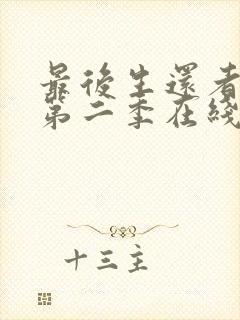 最後生還者
第二季在綫
十三主